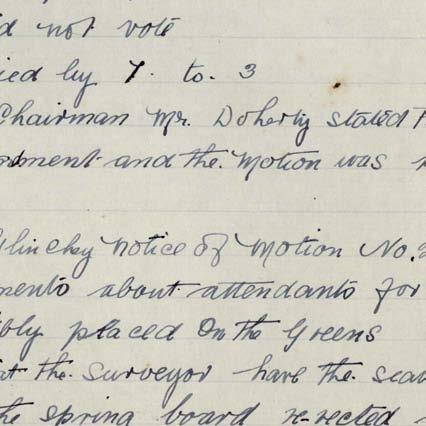 d not vote
ied by 7. to. 3
Chairman Mr. Doherty stated
ment and the. Motion was
Notice of Motion No.
ments about attendants for
bly placed On the Greens
at the. Surveyor have the.
the spring board re-rected